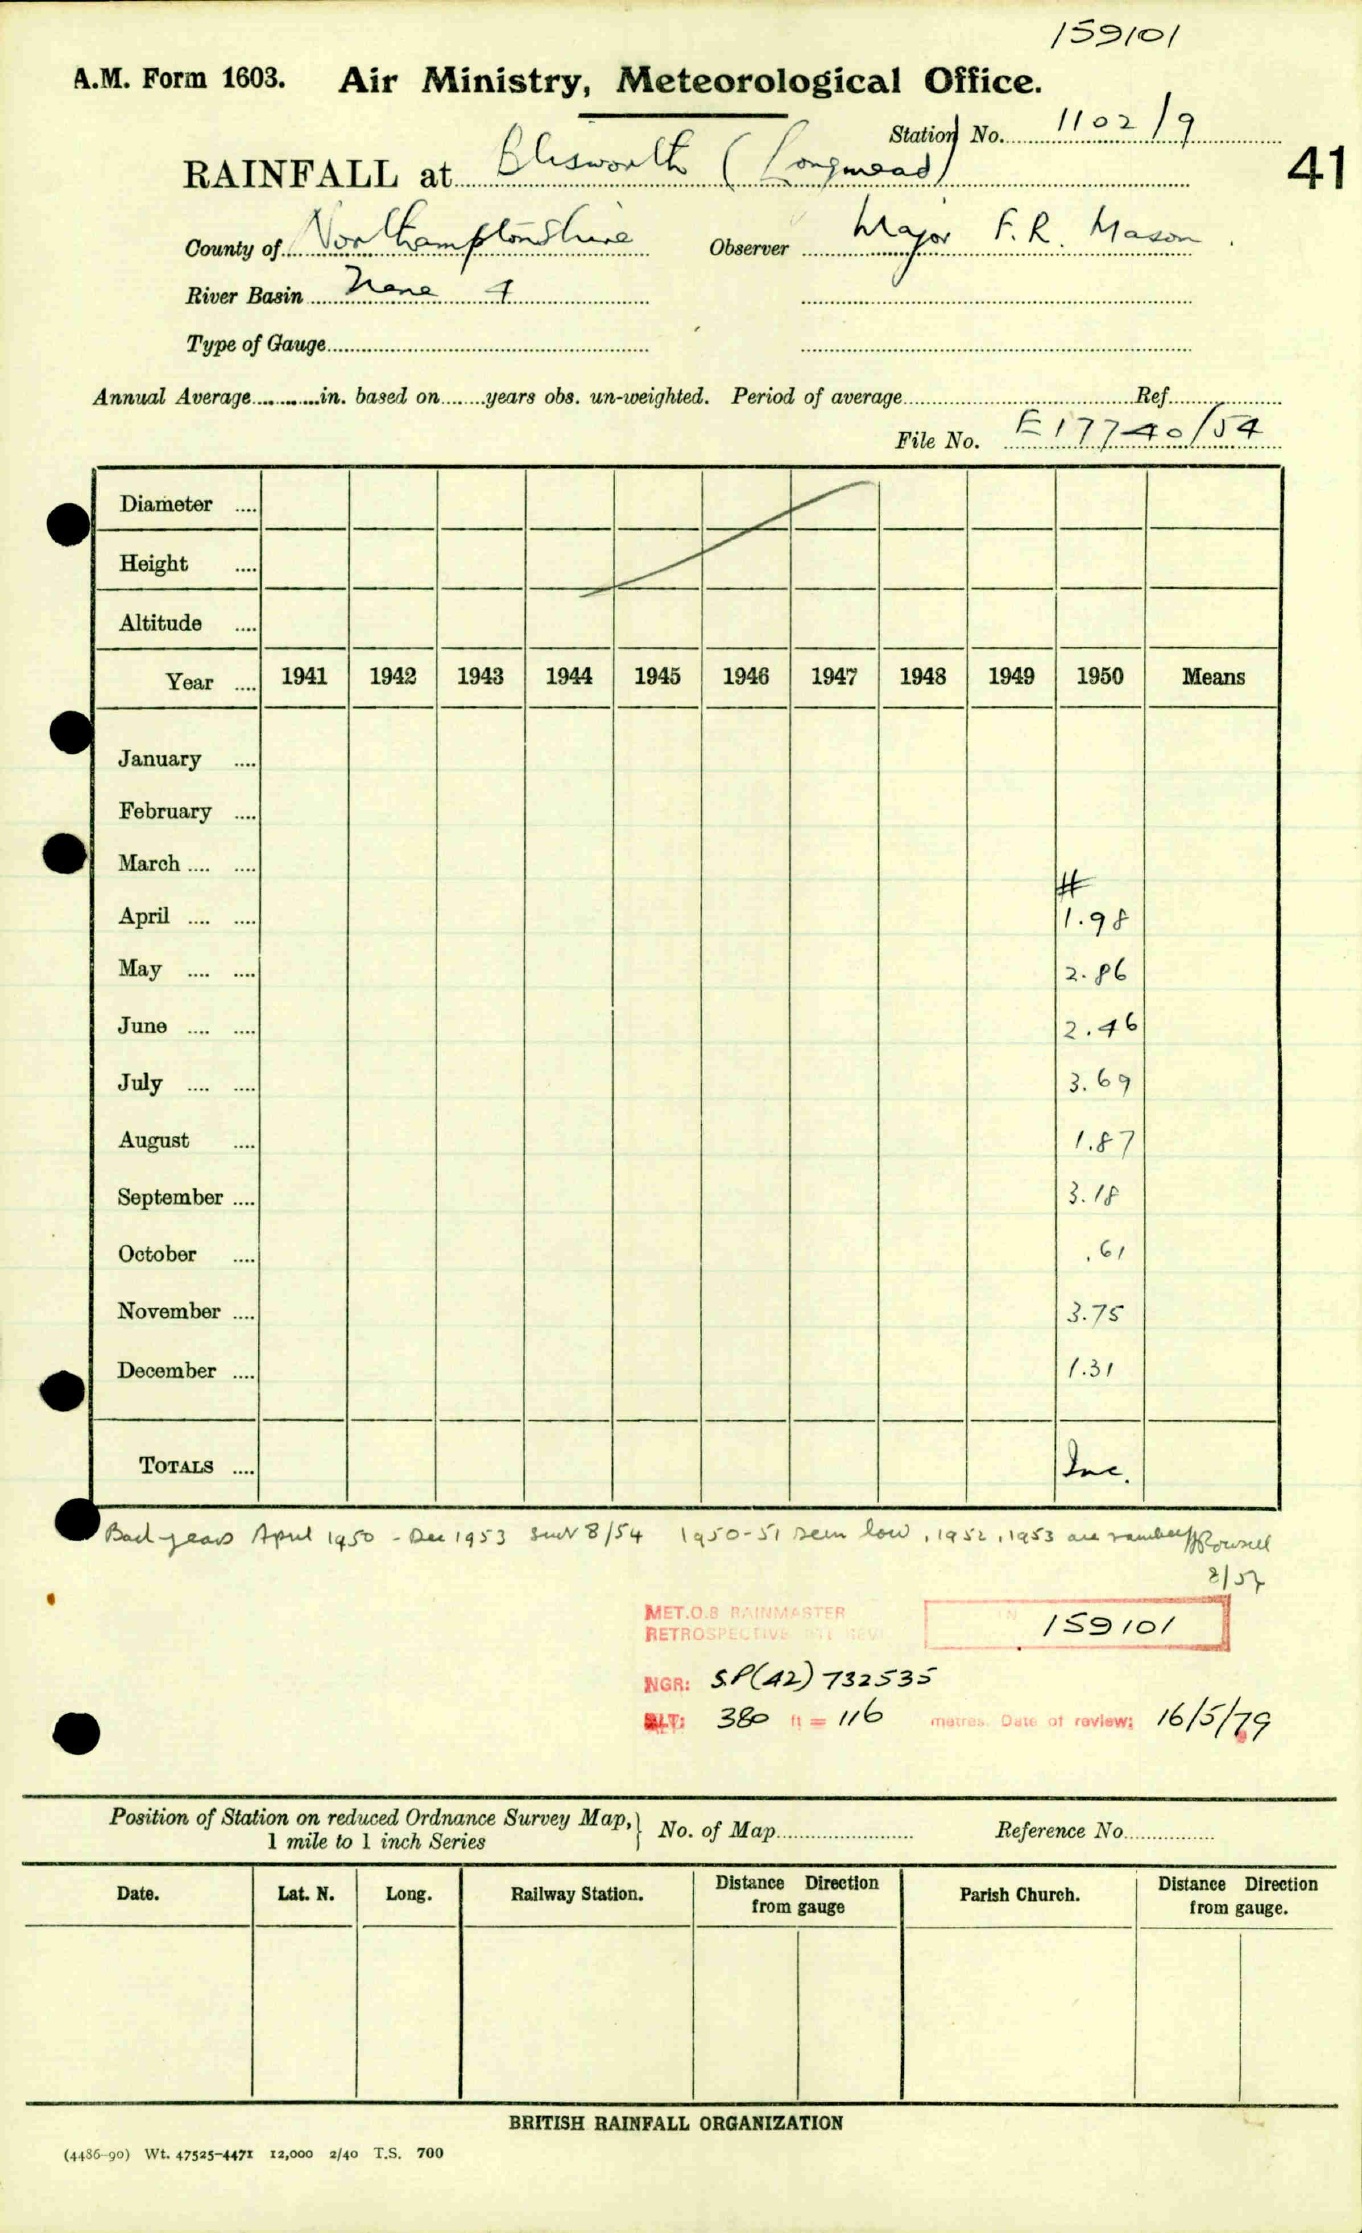 159101
A.M. Form 1603. Air Ministry, Meteorological Office.
Station No. 1102/9
RAINFALL at Blisworth (Longmead)
41
County of Northamptonshire Observer Major F.R. Mason.
River Basin Nene 4
Type of Gauge
Annual Average in. based on years obs. un-weighted. Period of average Ref.
File No. E17740/54
Diameter ....
Height ....
Altitude ....
Year .... 1941 1942 1943 1944 1945 1946 1947 1948 1949 1950 Means
January ....
February ....
March .... ....
#
April .... .... 1.98
May .... .... 2.86
June .... .... 2.46
July .... .... 3.69
August .... 1.87
September .... 3.18
October .... .61
November .... 3.75
December .... 1.31
TOTALS .... Inc.
Back years April 1950 - Dec 1953 8/54 1950-51 seem low, 1952, 1953 are
8/54
MET.O.8 RAINMASTER
RETROSPECTIVE
159101
NGR: SP(42) 732535
ALT: 380 ft = 116 metres. Date of review: 16/5/79
Position of Station on reduced Ordnance Survey Map, } No. of Map Reference No.
1 mile to 1 inch Series
Date. Lat. N. Long. Railway Station. Distance Direction from gauge Parish Church. Distance Direction from gauge.
BRITISH RAINFALL ORGANIZATION
(4486-90) Wt. 47525-4471 12,000 2/40 T.S. 700